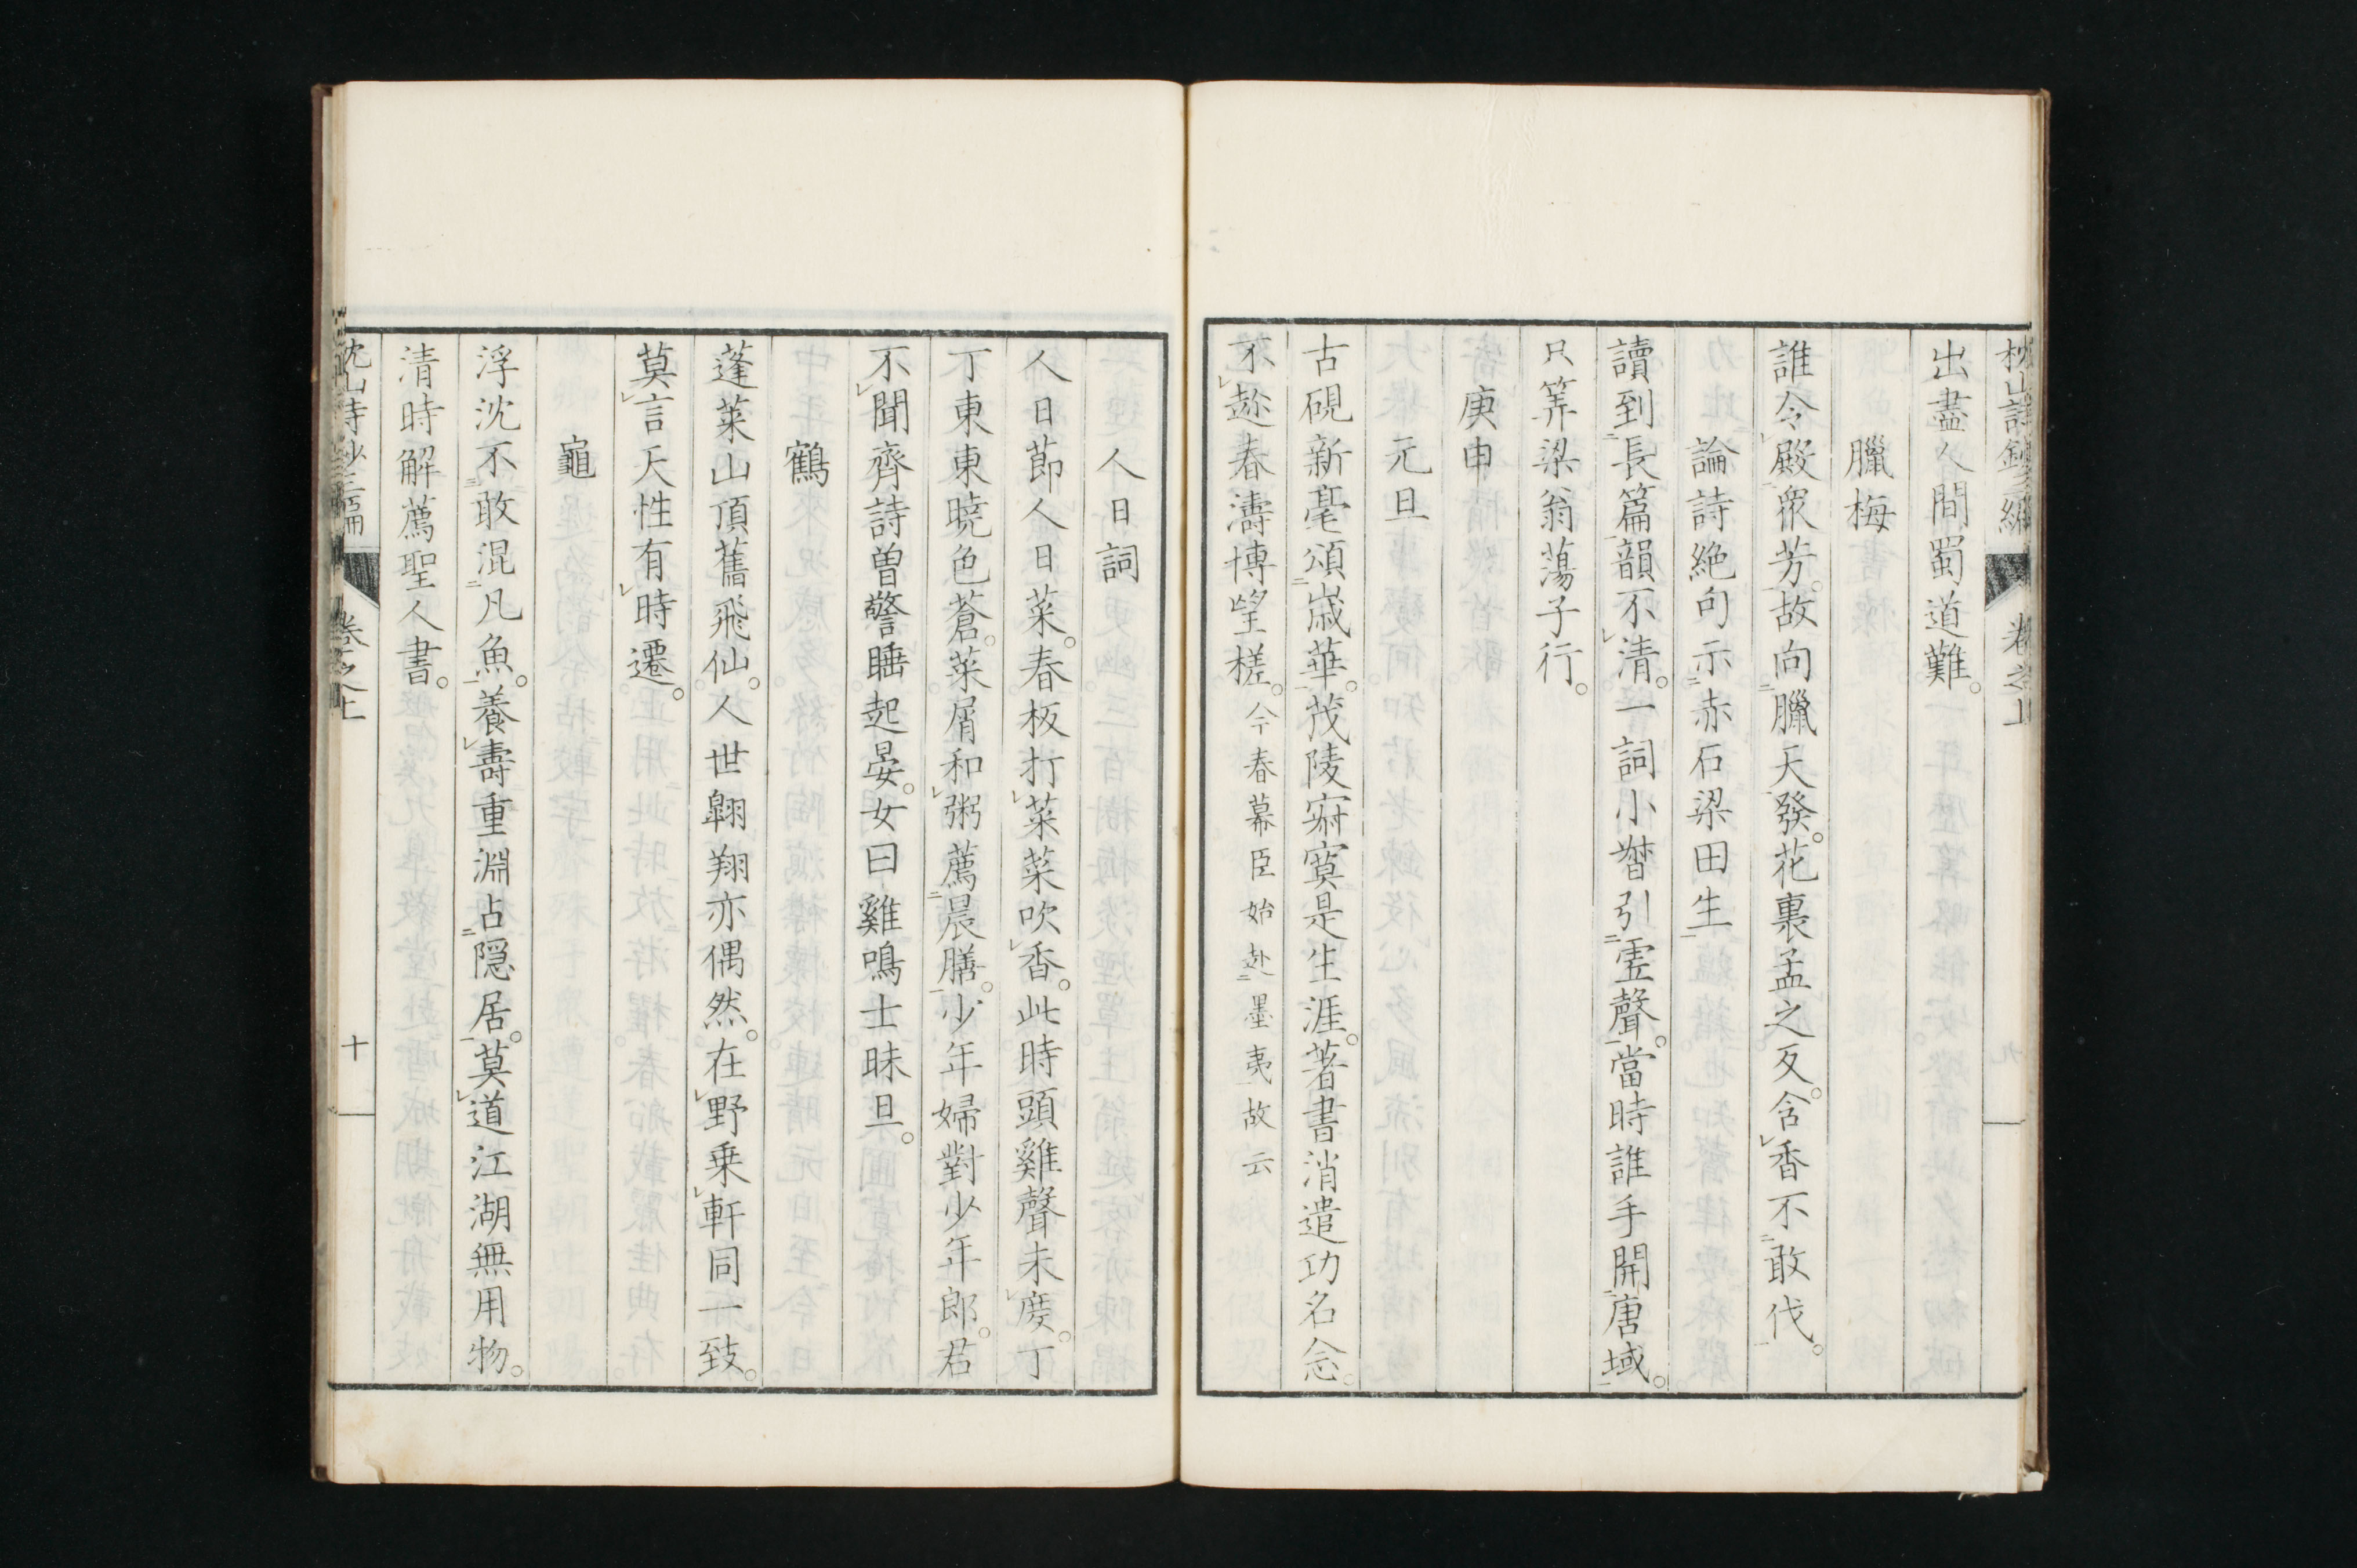 枕山詩鈔三編　卷之上
出盡人間蜀道難。
臘梅
誰令殿衆芳。故向臘天發。花裏孟之反。含香不敢伐。
論詩絶句示赤石梁田生
讀到長篇韻不清。一詞小犂引雩聲。當時誰手開唐域。
只筭梁翁蕩子行。
庚申
元旦
古硯新毫頌歳華。茂陵寂寞是生涯。著書消遣功名念。
不趂春濤博望槎。今春幕臣始赴墨夷故云
人日詞
人日節人日菜。春板打菜菜吹香。此時頭雞聲未度。丁
丁東東曉色蒼。菜屑和粥薦晨膳。少年婦對少年郎。君
不聞齊詩曽警睡起晏。女曰雞鳴士昧旦。
鶴
蓬萊山頂舊飛仙。人世翺翔亦偶然。在野乗軒同一致。
莫言天性有時遷。
龜
浮沈不敢混凡魚。養壽重淵占隠居。莫道江湖無用物。
清時解薦聖人書。
枕山詩鈔三編　卷之上　十